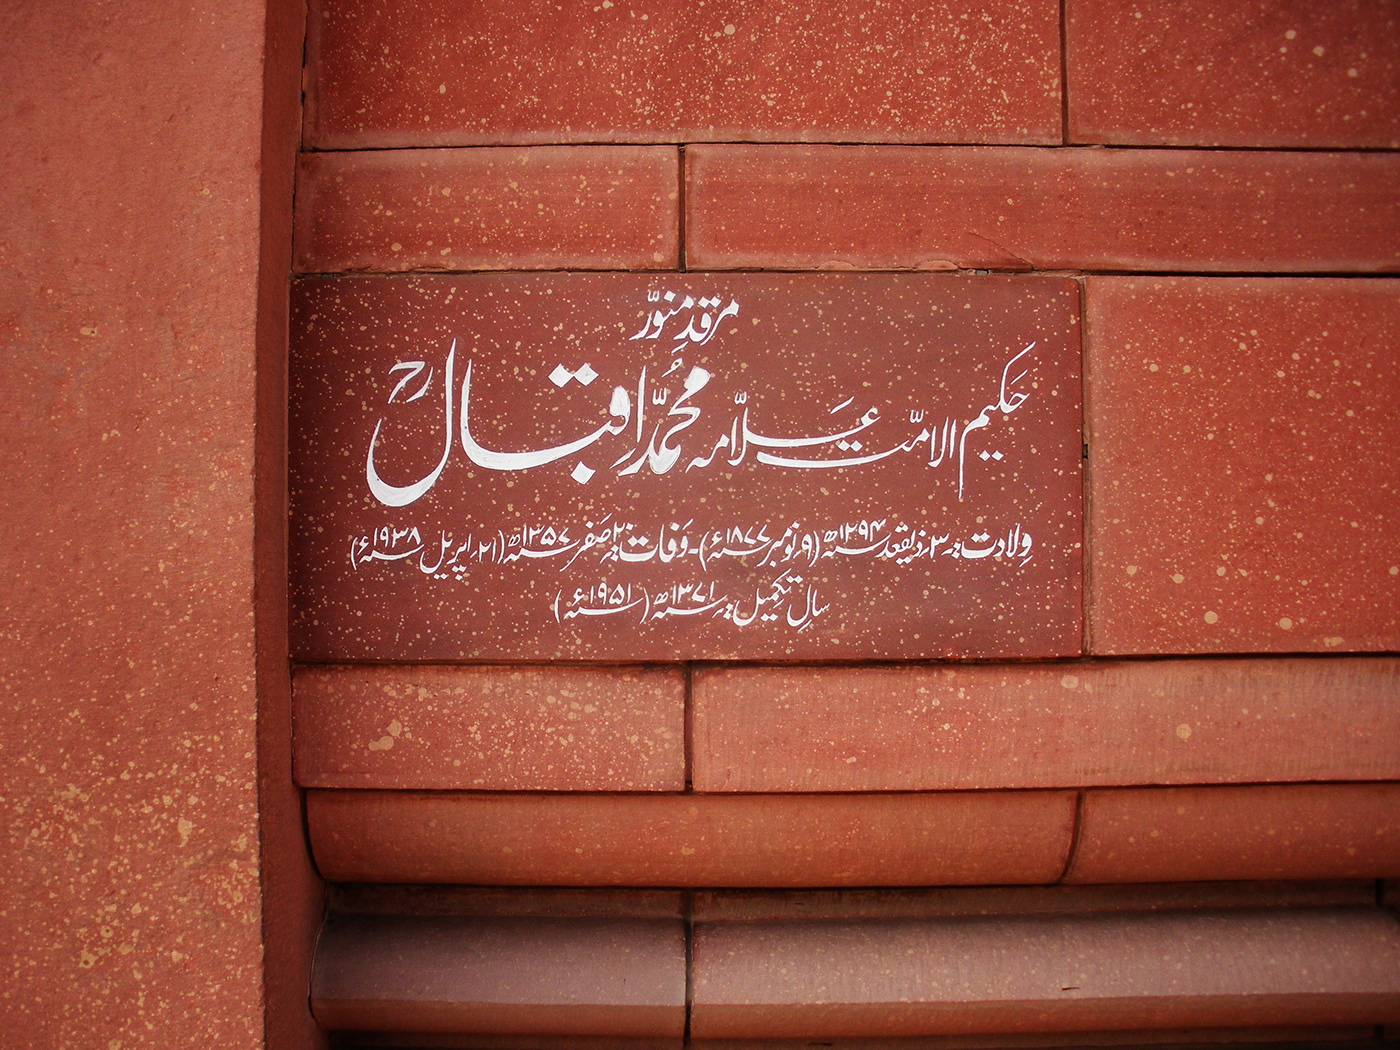 مرقدِ منوّر
حکیم الامّت علّامہ محمّد اقبالؒ
ولادت:۔ ۳؍ ذیقعد ۱۲۹۴ھ (۹؍ نومبر ۱۸۷۷ء)۔ وفات:۔ ۲۰؍ صفر ۱۳۵۷ھ (۲۱؍ اپریل ۱۹۳۸ء)
سالِ تکمیل:۔ ۱۳۷۱ھ (۱۹۵۱ء)